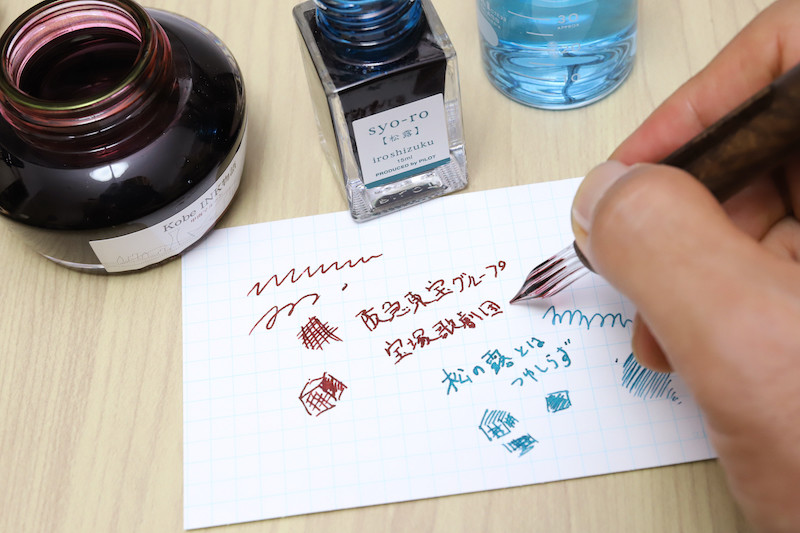 syo-ro
【松露】
iroshizuku
15ml
PRODUCED by PILOT
Kobe INK物語
阪急東宝グループ
宝塚歌劇団
松の露とは
つゆしらず